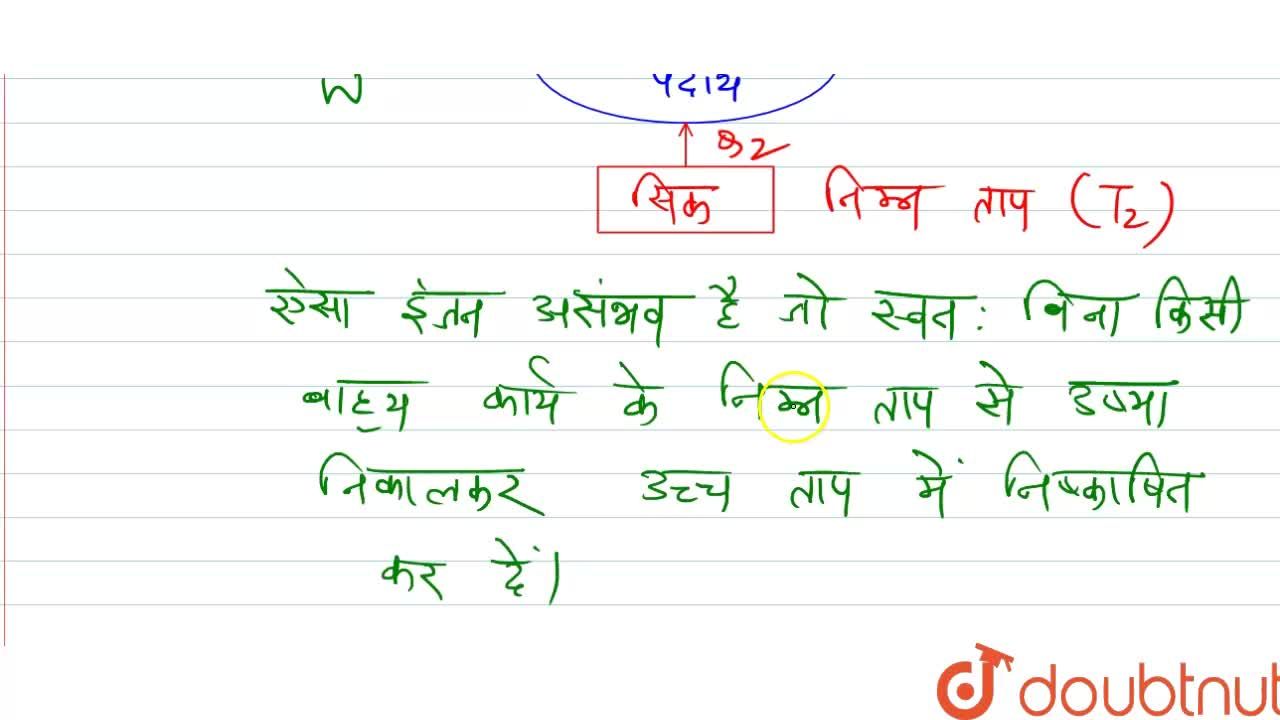 W पदार्थ
Q2
सिंक निम्न ताप (T2)
ऐसा इंजन असंभव है जो स्वत: बिना किसी
बाह्य कार्य के निम्न ताप से उष्मा
निकालकर उच्च ताप में निष्काषित
कर दें।
doubtnut